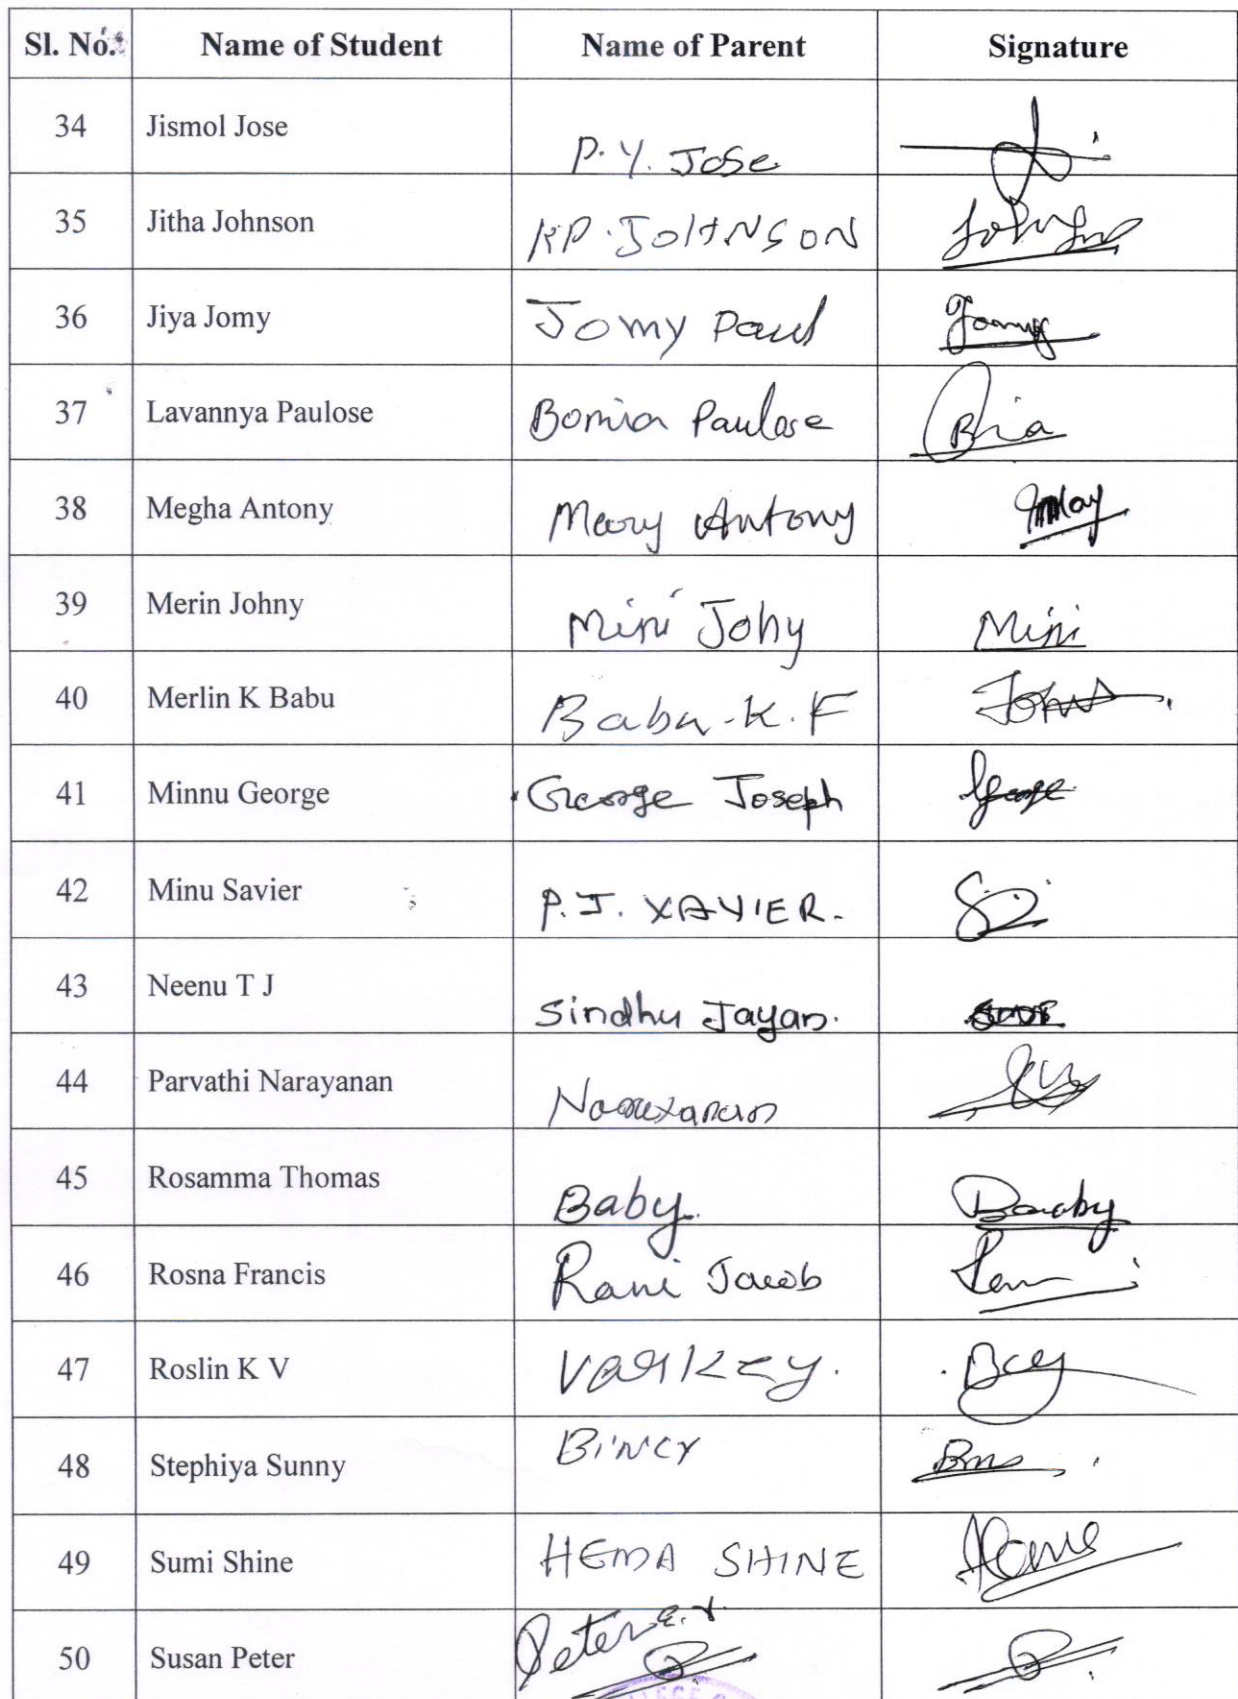 Sl. No. Name of Student Name of Parent Signature
34 Jismol Jose P. Y. Jose
35 Jitha Johnson KP. JOHNSON Johnson
36 Jiya Jomy Jomy Paul Jomy
37 Lavannya Paulose Bomia Paulose
38 Megha Antony Mary Antony
39 Merin Johny Mini Johy Mini
40 Merlin K Babu Babu. K. F
41 Minnu George George Joseph George
42 Minu Savier P. J. XAVIER.
43 Neenu T J Sindhu Jayan.
44 Parvathi Narayanan Narayanan
45 Rosamma Thomas Baby. Baby
46 Rosna Francis Rani Jacob
47 Roslin K V Varkey.
48 Stephiya Sunny BINCY
49 Sumi Shine HEMA SHINE
50 Susan Peter Peter